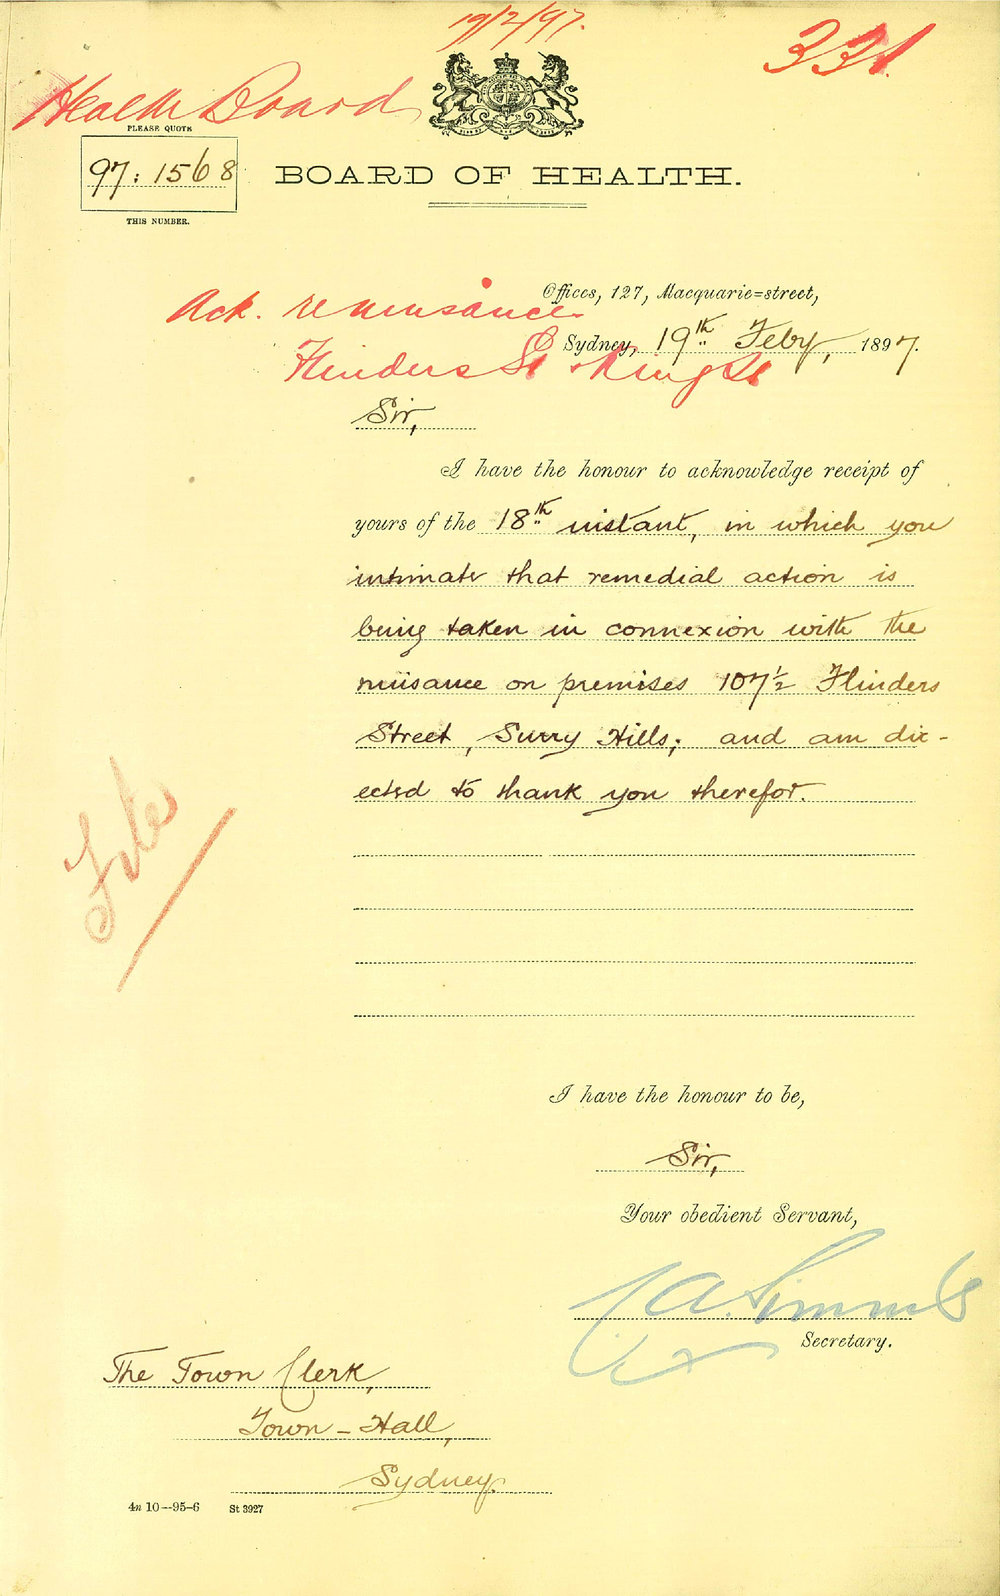 19/2/97.
331
Health Board
PLEASE QUOTE
97: 1568
THIS NUMBER.
BOARD OF HEALTH.
Offices, 127, Macquarie=street,
Ack. re nuisance
Sydney, 19th Feby, 1897.
Flinders St
Sir,
I have the honour to acknowledge receipt of
yours of the 18th instant, in which you
intimate that remedial action is
being taken in connexion with the
nuisance on premises 107½ Flinders
Street, Surry Hills; and am dir-
ected to thank you therefor.
File
I have the honour to be,
Sir,
Your obedient Servant,
Secretary.
The Town Clerk,
Town-Hall,
Sydney.
4n 10--95-6 St 3927